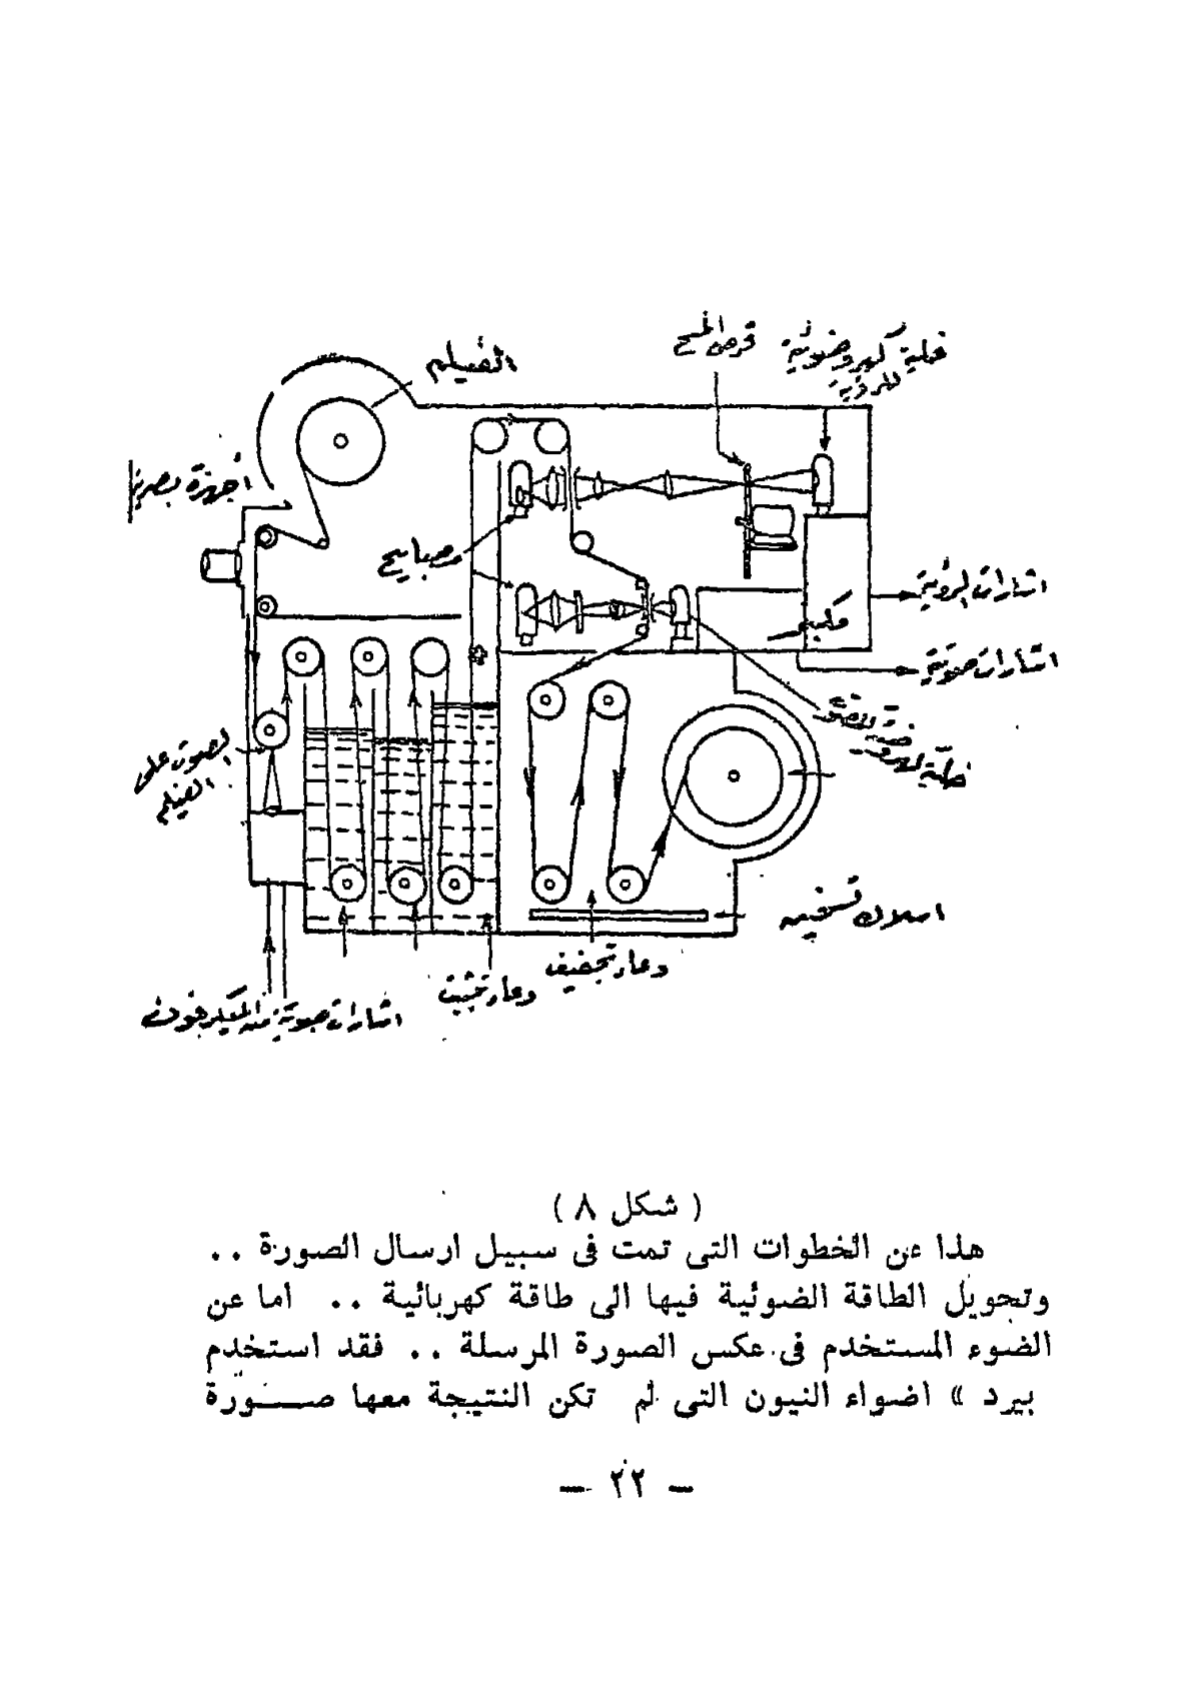 قرص المسح
خلية كهروضوئية
للرؤية
الفيلم
أجهزة بصرية
مصابيح
اشارات الرؤية
مكبر
اشارات صوتية
خلية
الصوت على
الفيلم
اسلاك تسخين
وعاء تجفيف
وعاء تثبيت
اشارات صوتية من الميكروفون
( شكل ٨ )
هذا عن الخطوات التى تمت فى سبيل ارسال الصورة ..
وتحويل الطاقة الضوئية فيها الى طاقة كهربائية .. اما عن
الضوء المستخدم فى عكس الصورة المرسلة .. فقد استخدم
بيرد » اضواء النيون التى لم تكن النتيجة معها صـــورة
— ٢٢ —